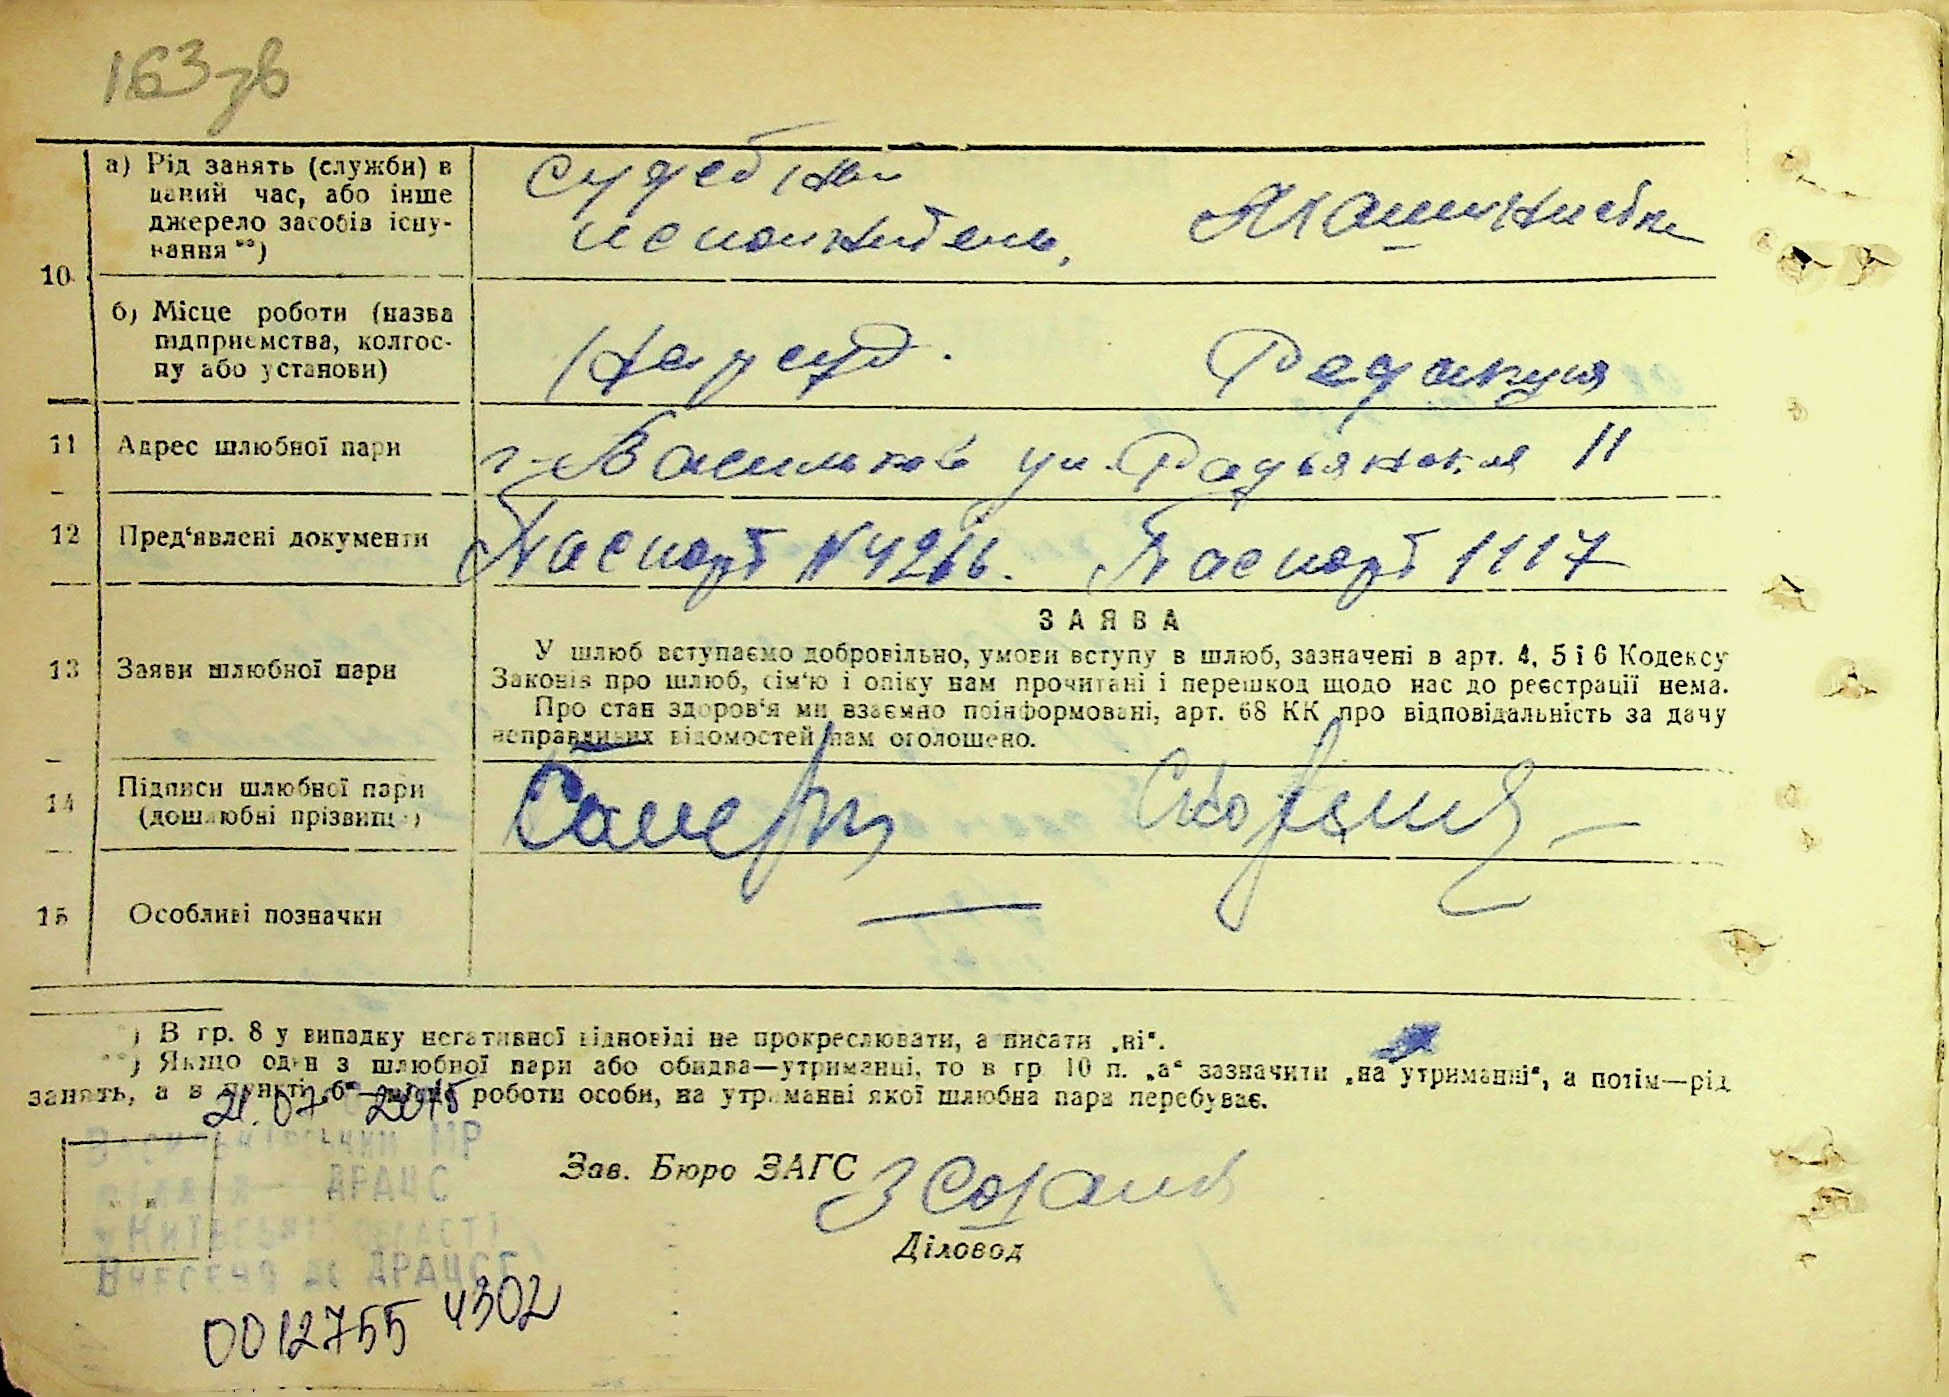 163 зв
а) Рід занять (служби) в
даний час, або інше
джерело засобів існу-
вання **)
судебный
исполнитель,
Машинистка
10
б) Місце роботи (назва
підприємства, колгос-
пу або установи)
Нарсуд.
Редакция
11 Адрес шлюбної пари
г. Васильков ул. Радьянская 11
12 Пред'явлені документи
Паспорт N 4266. Паспорт 1117
ЗАЯВА
13 Заяви шлюбної пари
У шлюб вступаємо добровільно, умови вступу в шлюб, зазначені в арт. 4, 5 і 6 Кодексу
Законів про шлюб, сім'ю і опіку нам прочитані і перешкод щодо нас до реєстрації нема.
Про стан здоров'я ми взаємно поінформовані, арт. 68 КК про відповідальність за дачу
неправдивих відомостей нам оголошено.
14 Підписи шлюбної пари
(дошлюбні прізвища)
15 Особливі позначки
*) В гр. 8 у випадку негативної відповіді не прокреслювати, а писати „ні“.
**) Якщо один з шлюбної пари або обидва—утриманці, то в гр 10 п. „а“ зазначити „на утриманні“, а потім—рід
занять, а в пункті „б“—місце роботи особи, на утриманні якої шлюбна пара перебуває.
21.07.2015
АРАЦС
Зав. Бюро ЗАГС
Київської області
Діловод
Внесено до ДРАЦСГ
0012755 4302